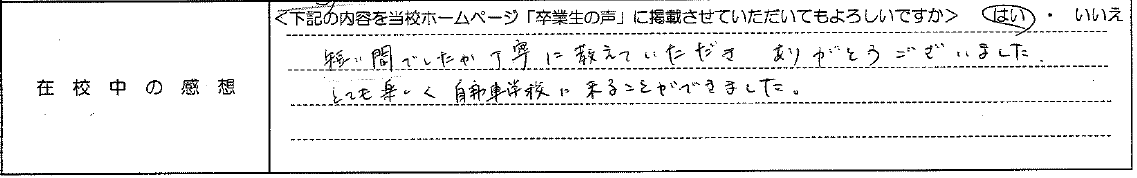 <下記の内容を当校ホームページ「卒業生の声」に掲載させていただいてもよろしいですか> はい ・ いいえ
在校中の感想
短い間でしたが丁寧に教えていただき ありがとうございました.
とても楽しく 自動車学校に来ることができました。